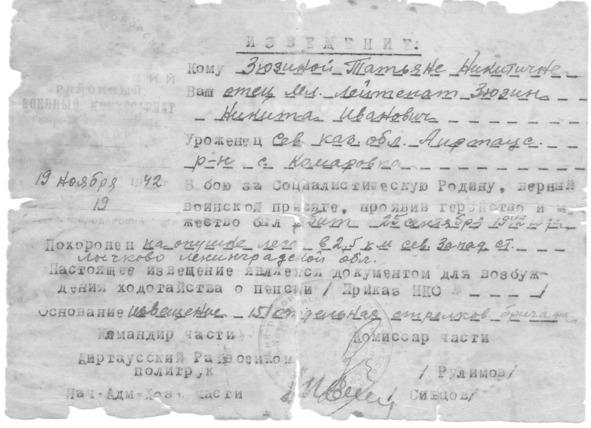 ИЗВЕЩЕНИЕ:
Кому Зюзиной Татьяне Никитичне
Ваш отец мл. лейтенант Зюзин
Никита Иванович
Уроженец Сев каз обл.
р-н с. Комаровка
РАЙОННЫЙ
ВОЕННЫЙ КОМИССАРИАТ
19 Ноября 1942
19
В бою за Социалистическую Родину, верный
воинской присяге, проявив геройство и
жество был убит 25 сентября 1942
Похоронен на опушке леса в 2,5 км сев. запад ст.
Лычково Ленинградской обл.
Настоящее извещение является документом для возбуж-
дения ходотайства о пенсии / Приказ НКО
Основание извещение 151 отдельная стрелков бригада
Командир части Комиссар части
Райвоенком
политрук / Рулимов/
Нач. Адм-Хоз. части / Сивцов/